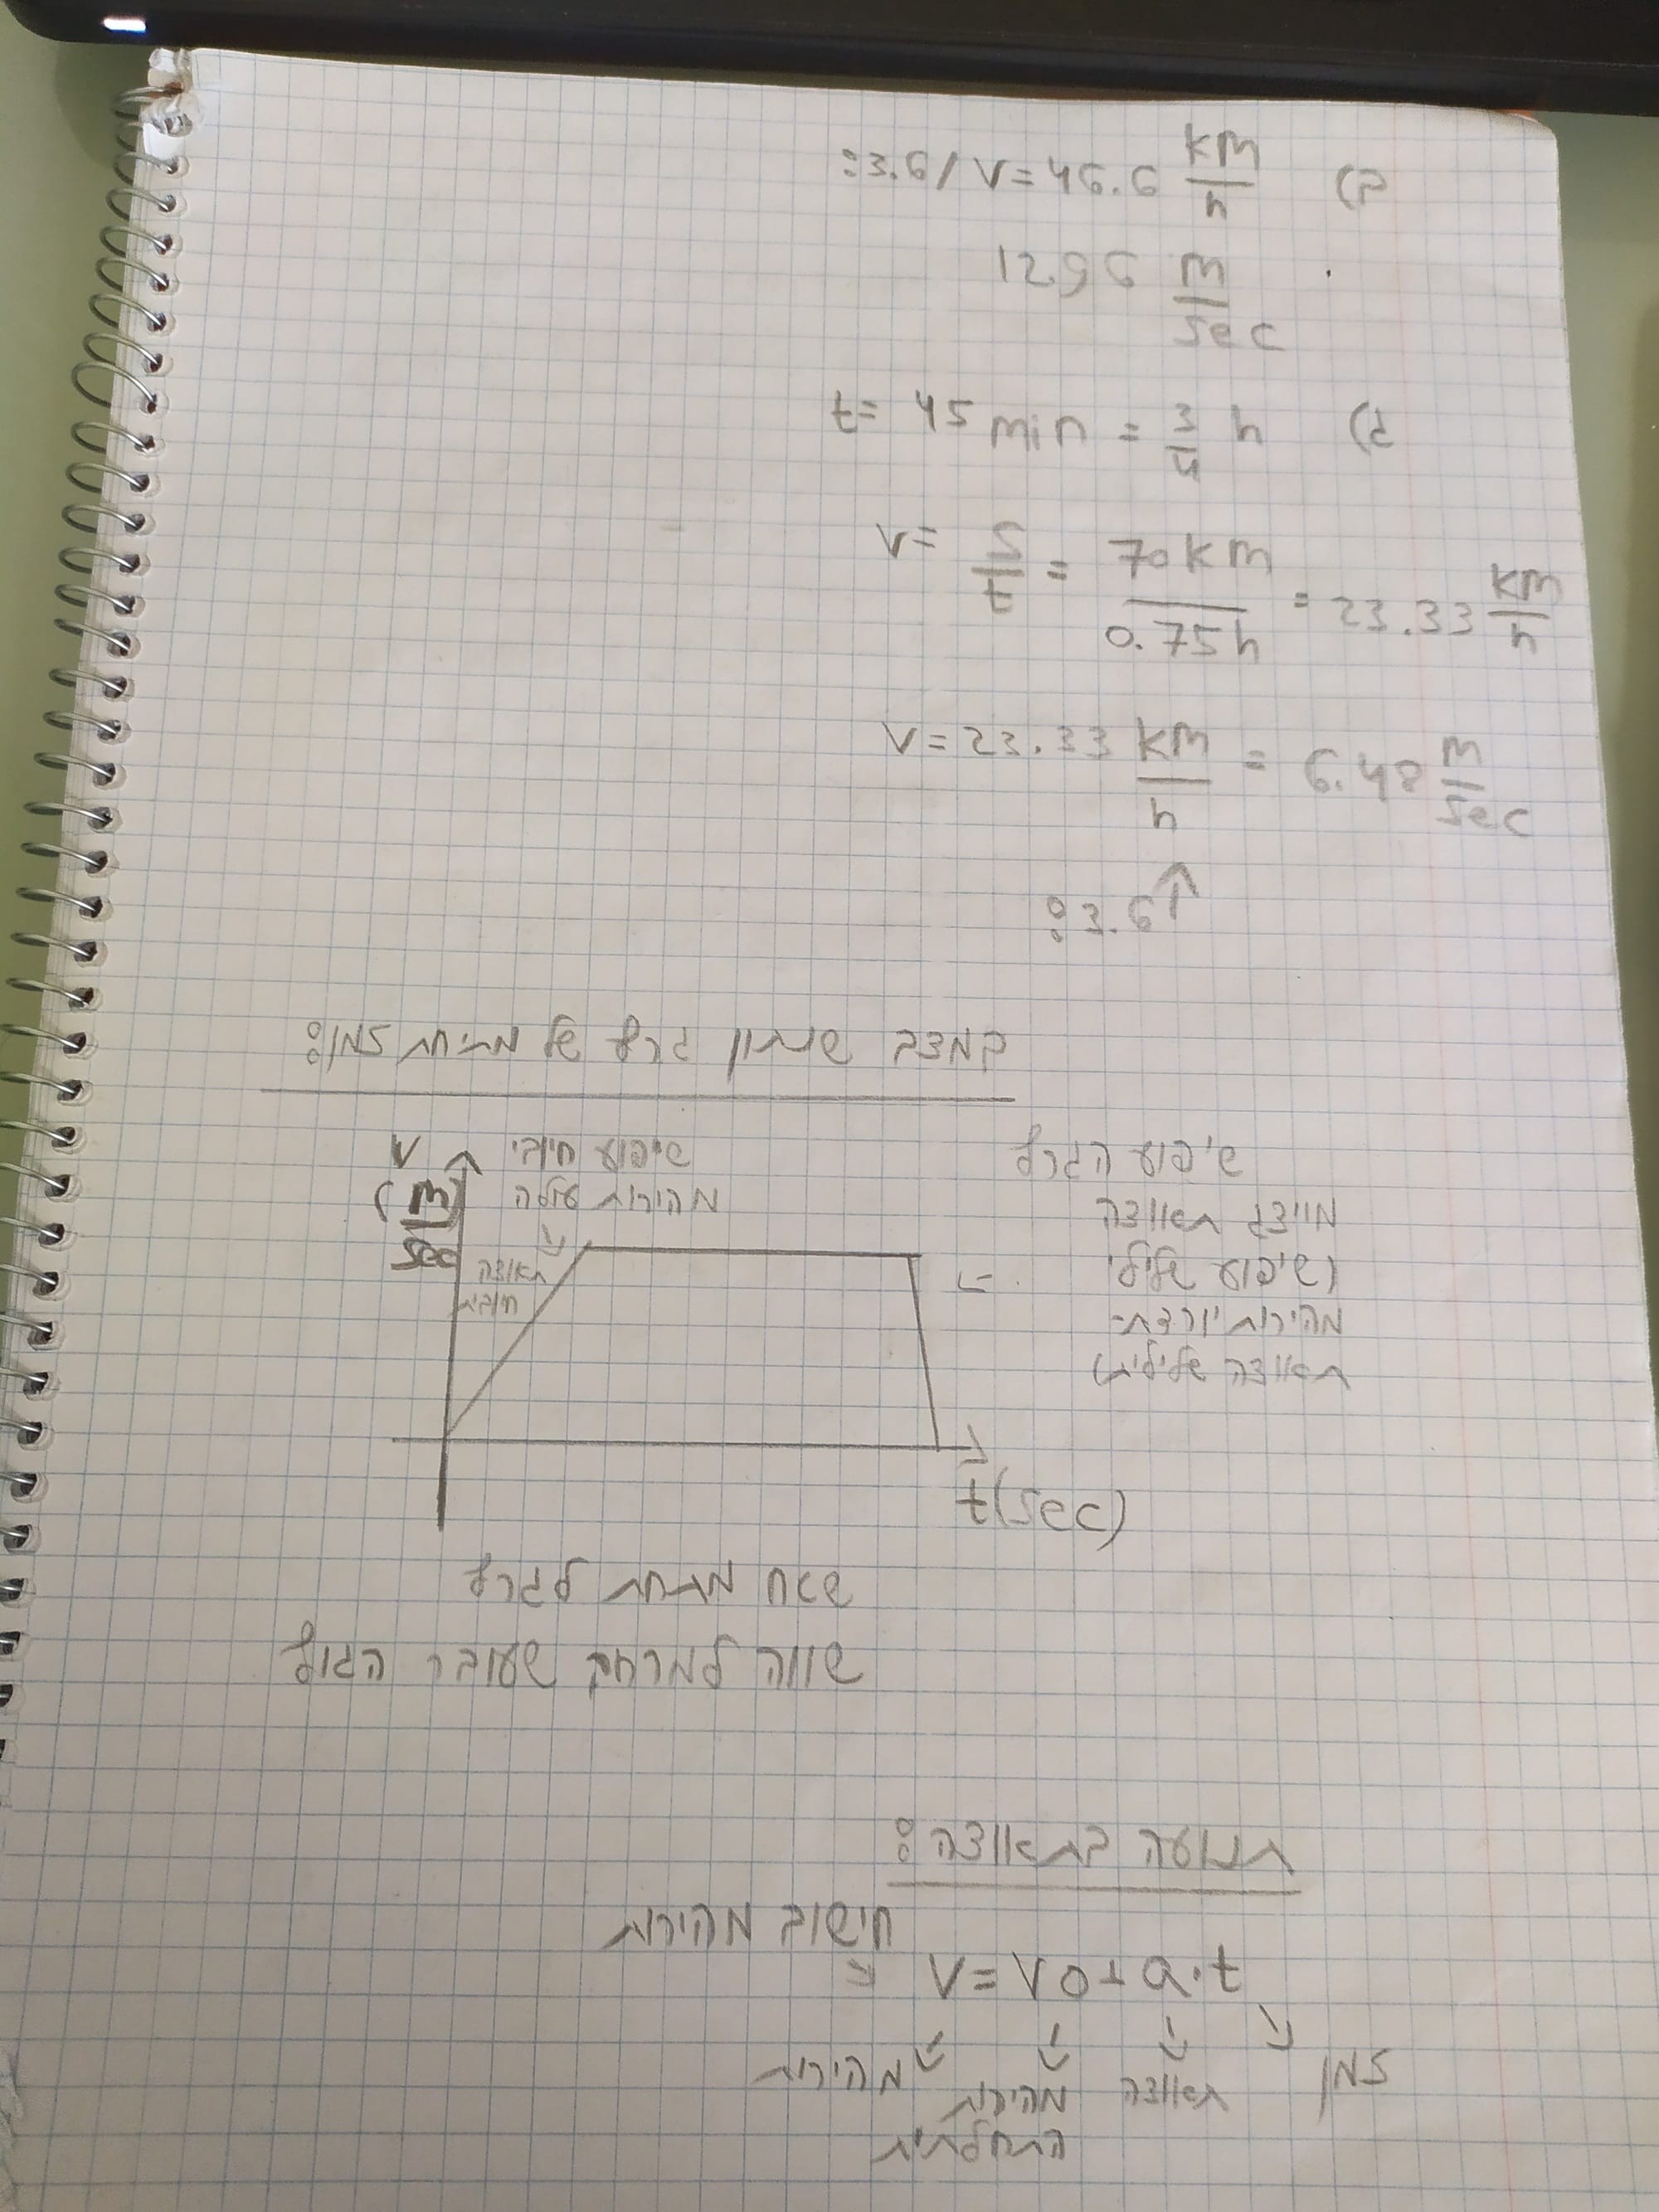 ב) :3.6/ v=46.6 km/h
12.96 m/sec
ג) t= 45 min = 3/4 h
v= s/t = 70 km/0.75h = 23.33 km/h
v=23.33 km/h = 6.48 m/sec
:3.6↑
במצב שנתון גרף של מהירות זמן:
v (m/sec)
שיפוע חיובי
מהירות עולה
תאוצה
חיובית
שיפוע הגרף
מייצג תאוצה
(שיפוע שלילי
מהירות יורדת-
תאוצה שלילית)
t(sec)
שטח מתחת לגרף
שווה למרחק שעובר הגוף
תנועה בתאוצה:
חישוב מהירות
v=v0+a·t
זמן
תאוצה
מהירות
התחלתית
מהירות